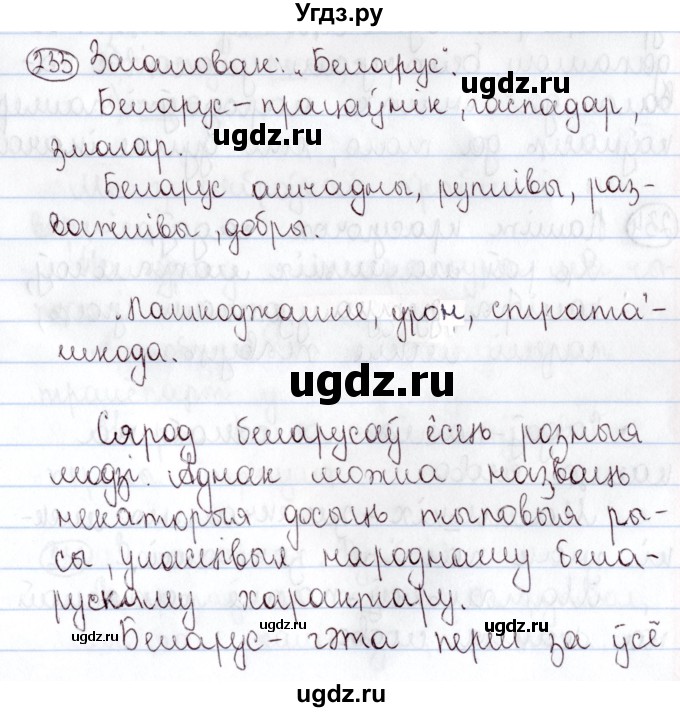 Угдз.ру
235 Загаловак: „Беларус".
ugdz.ru
Беларус – працаўнік, гаспадар,
змагар.
Беларус ашчадны, руплівы, раз-
важлівы, добры.
Пашкоджанне, урон, страта –
шкода.
ugdz.ru
Сярод беларусаў ёсць розныя
людзі. Аднак можна назваць
некаторыя досыць тыповыя ры-
сы, уласцівыя народнаму бела-
рускаму характару.
ugdz.ru ugdz.ru
Беларус – гэта перш за ўсё
ugdz.ru